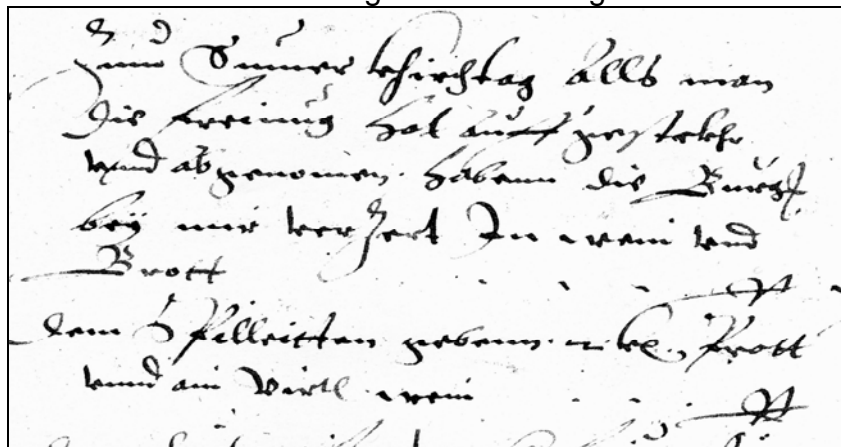 Zum Sumer khirchtag alls man
die freiung hat auff gestekht
vnnd abgenomen. habenn die Burg
beÿ mir verzert In wein vnd
Brott
dem Spilleitten gebenn. 2 kr. Prott
vnnd ain Virtl wein